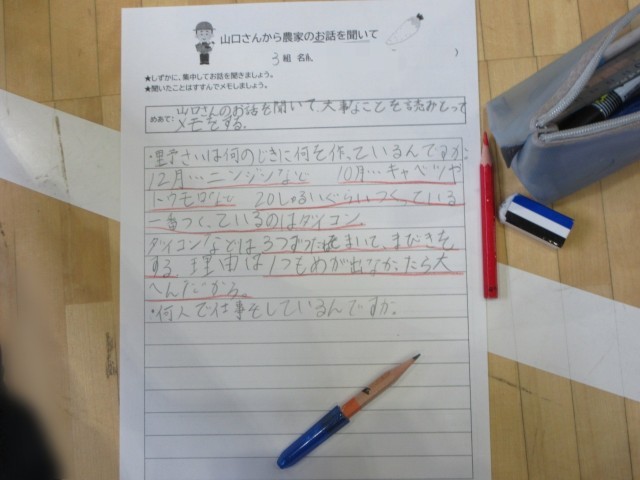 山口さんから農家のお話を聞いて
3組 名前
)
★しずかに、集中してお話を聞きましょう。
★聞いたことはすすんでメモしましょう。
めあて: 山口さんのお話を聞いて、大事なことを読みとって
メモをする。
・野さいは何のじきに何を作っているんですか。
12月…ニンジンなど 10月…キャベツや
トウモロなど 20しゅるいぐらいつくっている
一番つくっているのはダイコン
ダイコンなどは3つずつたねまいて、まびきを
する。理由は1つもめが出なかったら大
へんだから。
・何人で仕事をしているんですか。